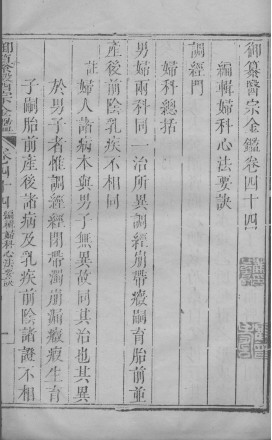 御纂醫宗金鑑卷四十四
編輯婦科心法要訣
調經門
婦科總括
男婦兩科同一治所異調經崩帶癥嗣育胎前並
產後前陰乳疾不相同
註 婦人諸病本與男子無異故同其治也其異
於男子者惟調經經閉帶濁崩漏癥瘕生育
子嗣胎前產後諸病及乳疾前陰諸證不相
御纂醫宗金鑑 卷四十四 編輯婦科心法要訣 一